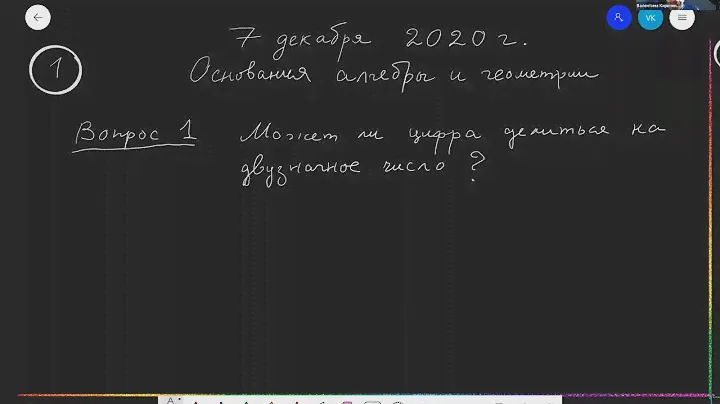 VK
7 декабря 2020 г.
1
Основания алгебры и геометрии
Вопрос 1 Может ли цифра делиться на
двузначное число ?